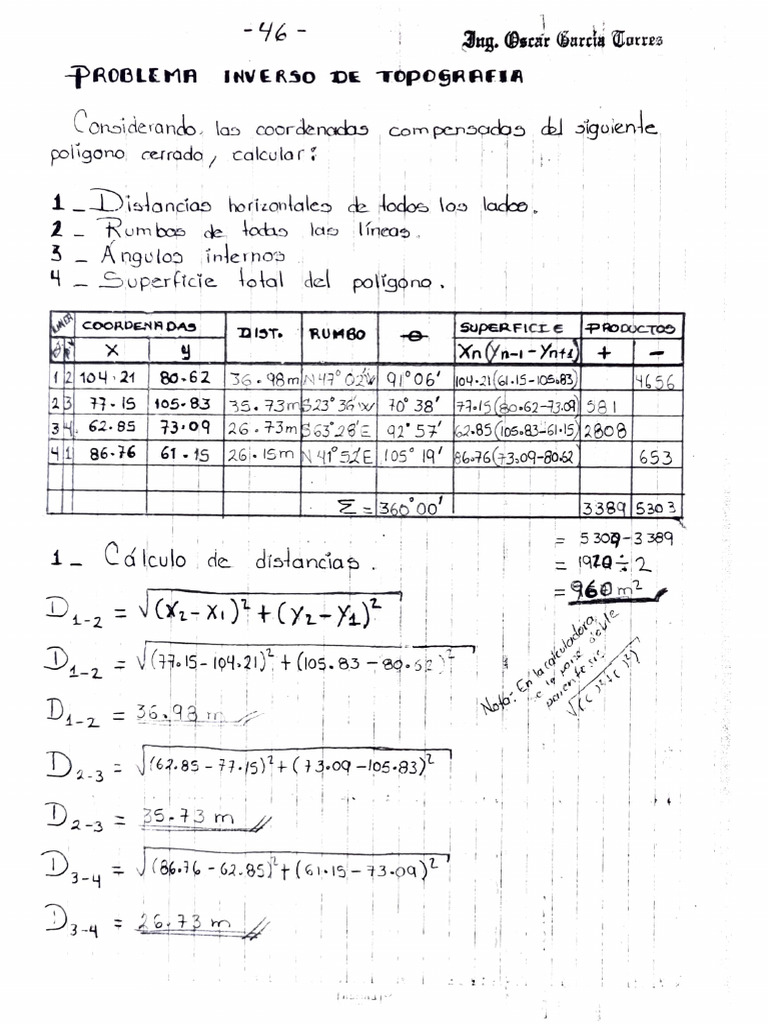 -46-
Ing. Oscar García Torres
PROBLEMA INVERSO DE TOPOGRAFIA
Considerando, las coordenadas compensadas del siguiente
polígono cerrado, calcular:
1 - Distancias horizontales de todos los lados.
2 - Rumbos de todas las líneas.
3 - Ángulos internos
4 - Superficie total del polígono.
COORDENADAS DIST. RUMBO θ SUPERFICIE PRODUCTOS
X y Xn(Yn-1 - Yn+1) + -
1 2 104.21 80.62 36.98m N47°02'W 91°06' 104.21(61.15-105.83) 4656
2 3 77.15 105.83 35.73m S23°36'W 70°38' 77.15(80.62-73.09) 581
3 4 62.85 73.09 26.73m S63°28'E 92°57' 62.85(105.83-61.15) 2808
4 1 86.76 61.15 26.15m N41°52'E 105°19' 86.76(73.09-80.62) 653
Σ = 360°00' 3389 5303
= 5309-3389
= 1920÷2
= 960 m²
1- Cálculo de distancias.
D1-2 = √(X2-X1)²+(Y2-Y1)²
D1-2 = √(77.15-104.21)²+(105.83-80.62)²
Nota: En la calculadora
doble
parentesis
√(( )²+( )²)
D1-2 = 36.98 m
D2-3 = √(62.85-77.15)²+(73.09-105.83)²
D2-3 = 35.73 m
D3-4 = √(86.76-62.85)²+(61.15-73.09)²
D3-4 = 26.73 m